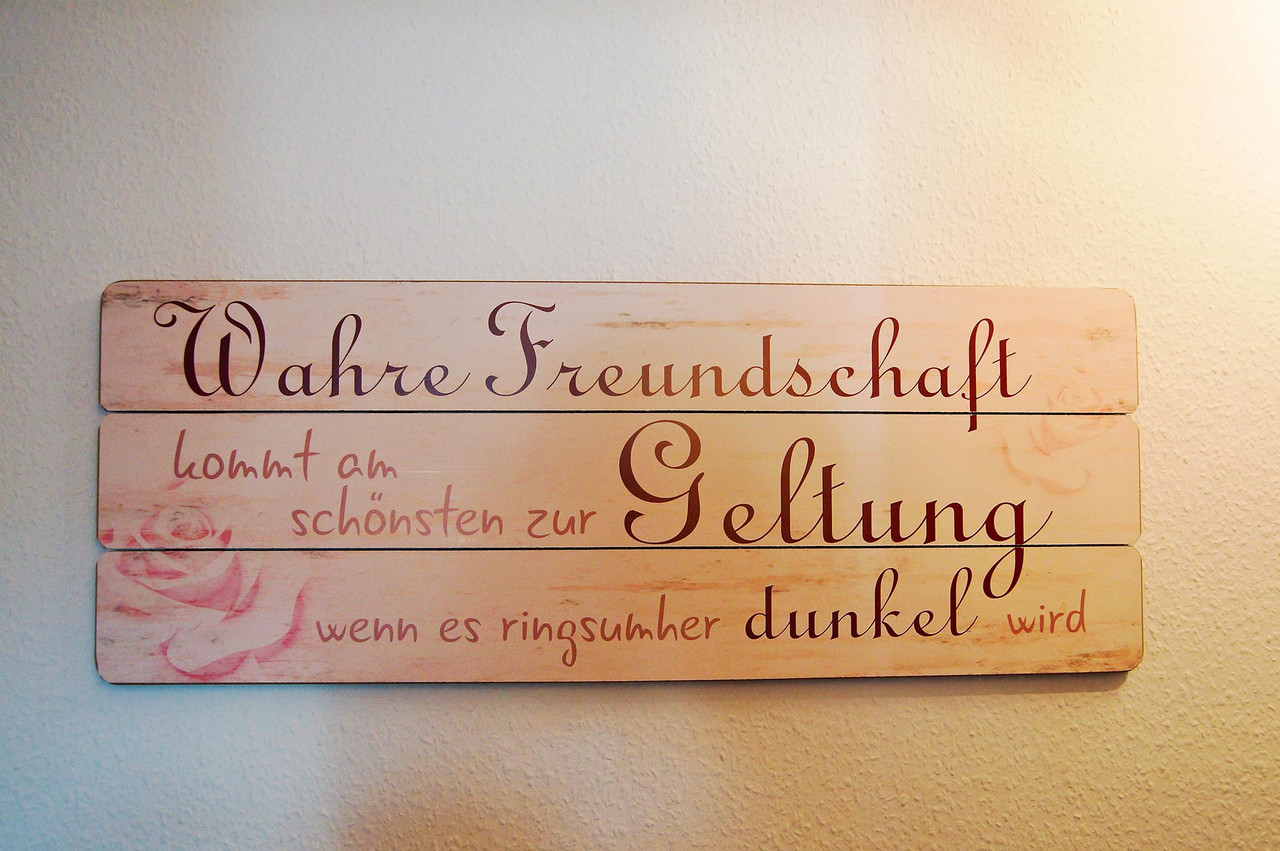 Wahre Freundschaft
kommt am
schönsten zur Geltung
wenn es ringsumher dunkel wird